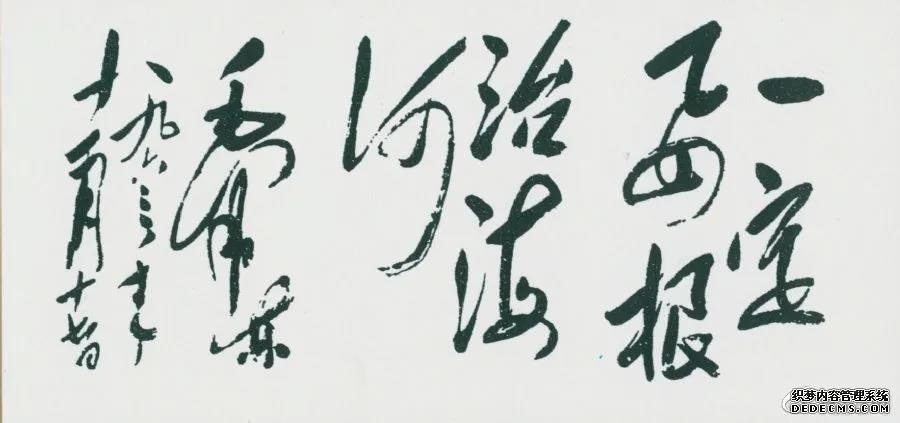 一定
要根
治海
河
毛泽东
一九六三年
十一月十七日
织梦内容管理系统
DEDECMS.COM